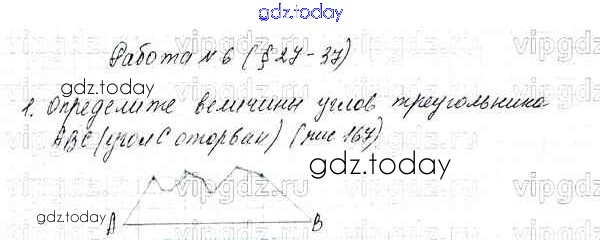 gdz.today
Работа №6 (§27-37)
gdz.today
1. Определите величины углов треугольника
ABC (угол C оторван) (рис 167)
gdz.today
gdz.today
A B
vipgdz.ru